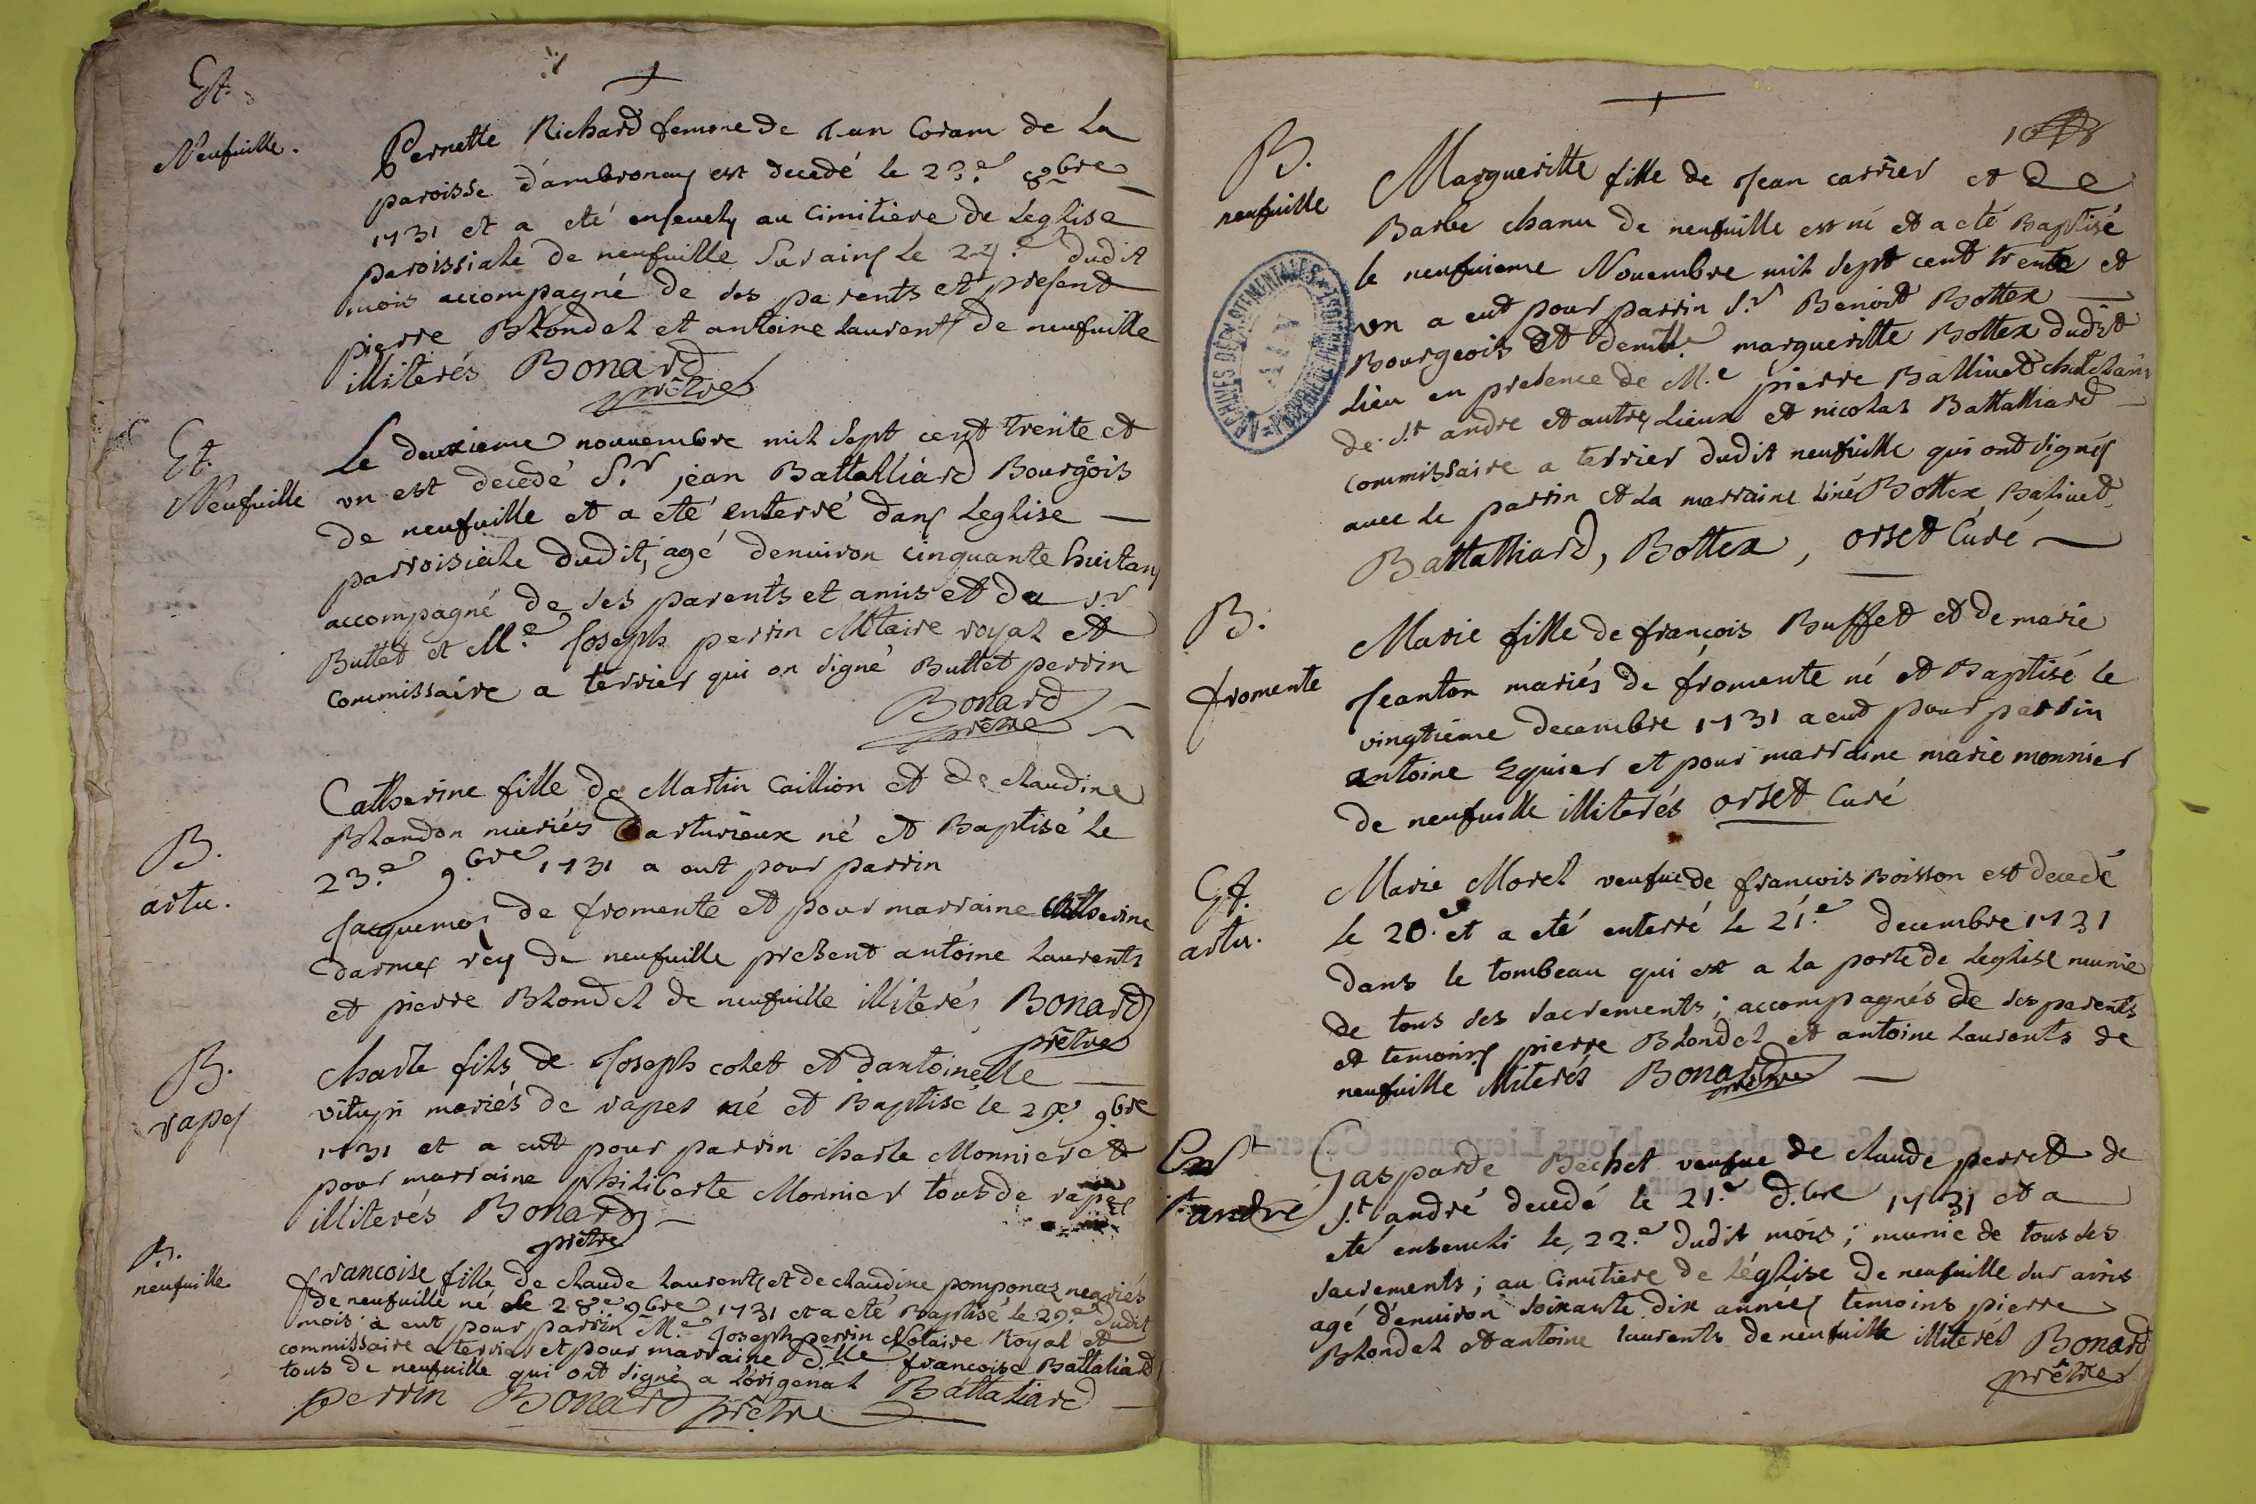 Et.
Neufuille.
Pernette Richard femme de Jean Coram de La
paroisse d'ambronay est decedé le 23.e 8bre
1731 et a eté enseuely au Cimitiere de Leglise
paroissiale de neufuille Surains le 24.e dudit
mois accompagné de ses parents et present
pierre Blondel et antoine laurents de neufuille
illiterés Bonard
prêtre
Et.
Neufuille
Le deuxieme nouuembre mil sept cent trente et
vn est decedé S.r jean Battalliard Bourgöis
de neufuille et a eté enterré dans Leglise
parroisiale dudit, agé denuiron cinquante huit ans
accompagné de ses parents et amis et du s.r
Buttet et M.e Joseph perrin Notaire royal et
Commissaire a terrier qui on signé Buttet perrin
Bonard
prêtre
B.
artu.
Catherine fille de Martin Caillion et de claudine
Blandon mariés Darturieux né et Baptisé le
23.e 9.bre 1731 a eut pour parrin
Jacquemoz de fromente et pour marraine Catherine
rey de neufuille present antoine Laurents
et pierre Blondel de neufuille illiterés Bonard
prêtre
B.
rapes
Charle fils de Joseph colet et dantoinette
mariés de rapes né et Baptisé le 9.bre
1731 et a eut pour parrin charle Monnier et
pour marraine philiberte Monnier tous de rapes
illiterés Bonard
prêtre
B.
neufuille
francoise fille de claude laurents et de claudine pomponas mariés
de neufuille né le 28.e 9bre 1731 et a eté Baptisé le 29.e dudit
mois a eut pour parrin M.e Joseph perrin Notaire Royal et
commissaire a terrier et pour marraine d.lle francoise Battaliard
tous de neufuille qui ont signé a lorigenal Battaliard
perrin Bonard prêtre
B.
neufuille
Margueritte fille de Jean carrier et de
Barbe chanu de neufuille est né et a eté Baptisé
le neufuieme Nouembre mil sept cent trente et
vn a eut pour parrin S.r Benoit Bottex
Bourgeois et demlle margueritte Bottex dudit
Lieu en presence de M.e pierre Balliuet chatelain
de S.t andre et autres Lieux et nicolas Battalliard
commissaire a terrier dudit neufuille qui ont signés
auec le parrin et La marraine Bottex, Baliuet,
Battalliard, Bottex, orset Curé
B.
fromente
Marie fille de françois Buffet et de marie
Jeanton mariés de fromente né et Baptisé le
vingtieme decembre 1731 a eut pour parrin
antoine Eguier et pour marraine marie monnier
de neufuille illiterés orset Curé
Et.
artu.
Marie Morel veufue de françois Boisson est decedé
le 20.e et a eté enterré le 21.e decembre 1731
dans le tombeau qui est a la porte de Leglise munie
de tous ses sacrements; accompagnés de ses parents
et temoins pierre Blondel et antoine Laurents de
neufuille illiterés Bonard
prêtre
Ent
St andré
Gasparde Bechet veufue de claude perret de
S.t andré decedé le 21.e d.bre 1731 et a
eté enseueli le, 22.e dudit mois; munie de tous ses
sacrements; au Cimitiere de l'église de neufuille sur
agé d'enuiron soixante dix années temoins pierre
Blondel et antoine laurents de neufuille illiterés Bonard
prêtre
ARCHIVES DÉPARTEMENTALES
AIN